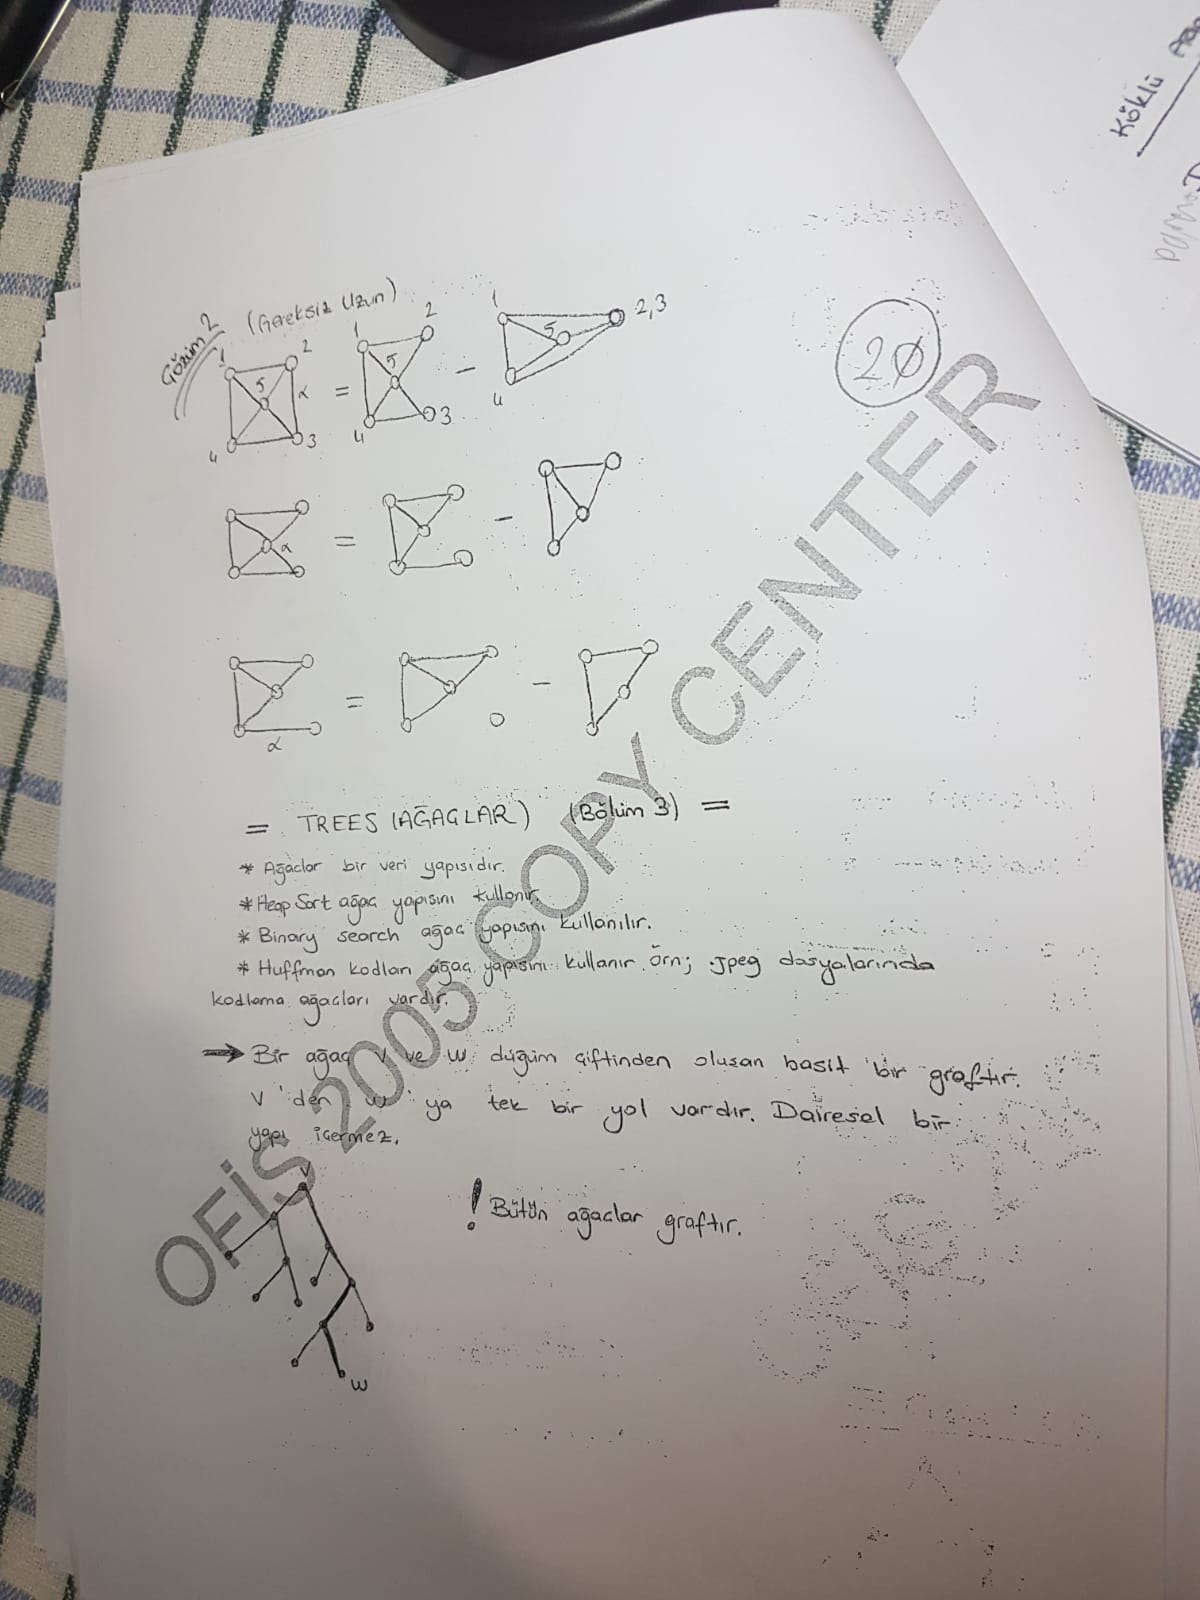 Köklü
Çözüm 2 (Gereksiz Uzun)
20
1 2 = 1 2 - 1 2,3
5 α 5 5
4 3 4 3 4
α = -
= -
α
= TREES (AĞAÇLAR) (Bölüm 3) =
* Ağaçlar bir veri yapısıdır.
* Heap Sort ağaç yapısını kullanır
* Binary search ağaç yapısını kullanılır.
* Huffman kodları ağaç yapısını kullanır. Örn; .jpeg dosyalarında
kodlama ağaçları vardır.
→ Bir ağaç v ve w düğüm çiftinden oluşan basit bir graftır.
v'den w'ya tek bir yol vardır. Dairesel bir
yapı içermez.
v
! Bütün ağaçlar graftır.
w
OFİS 2005 COPY CENTER